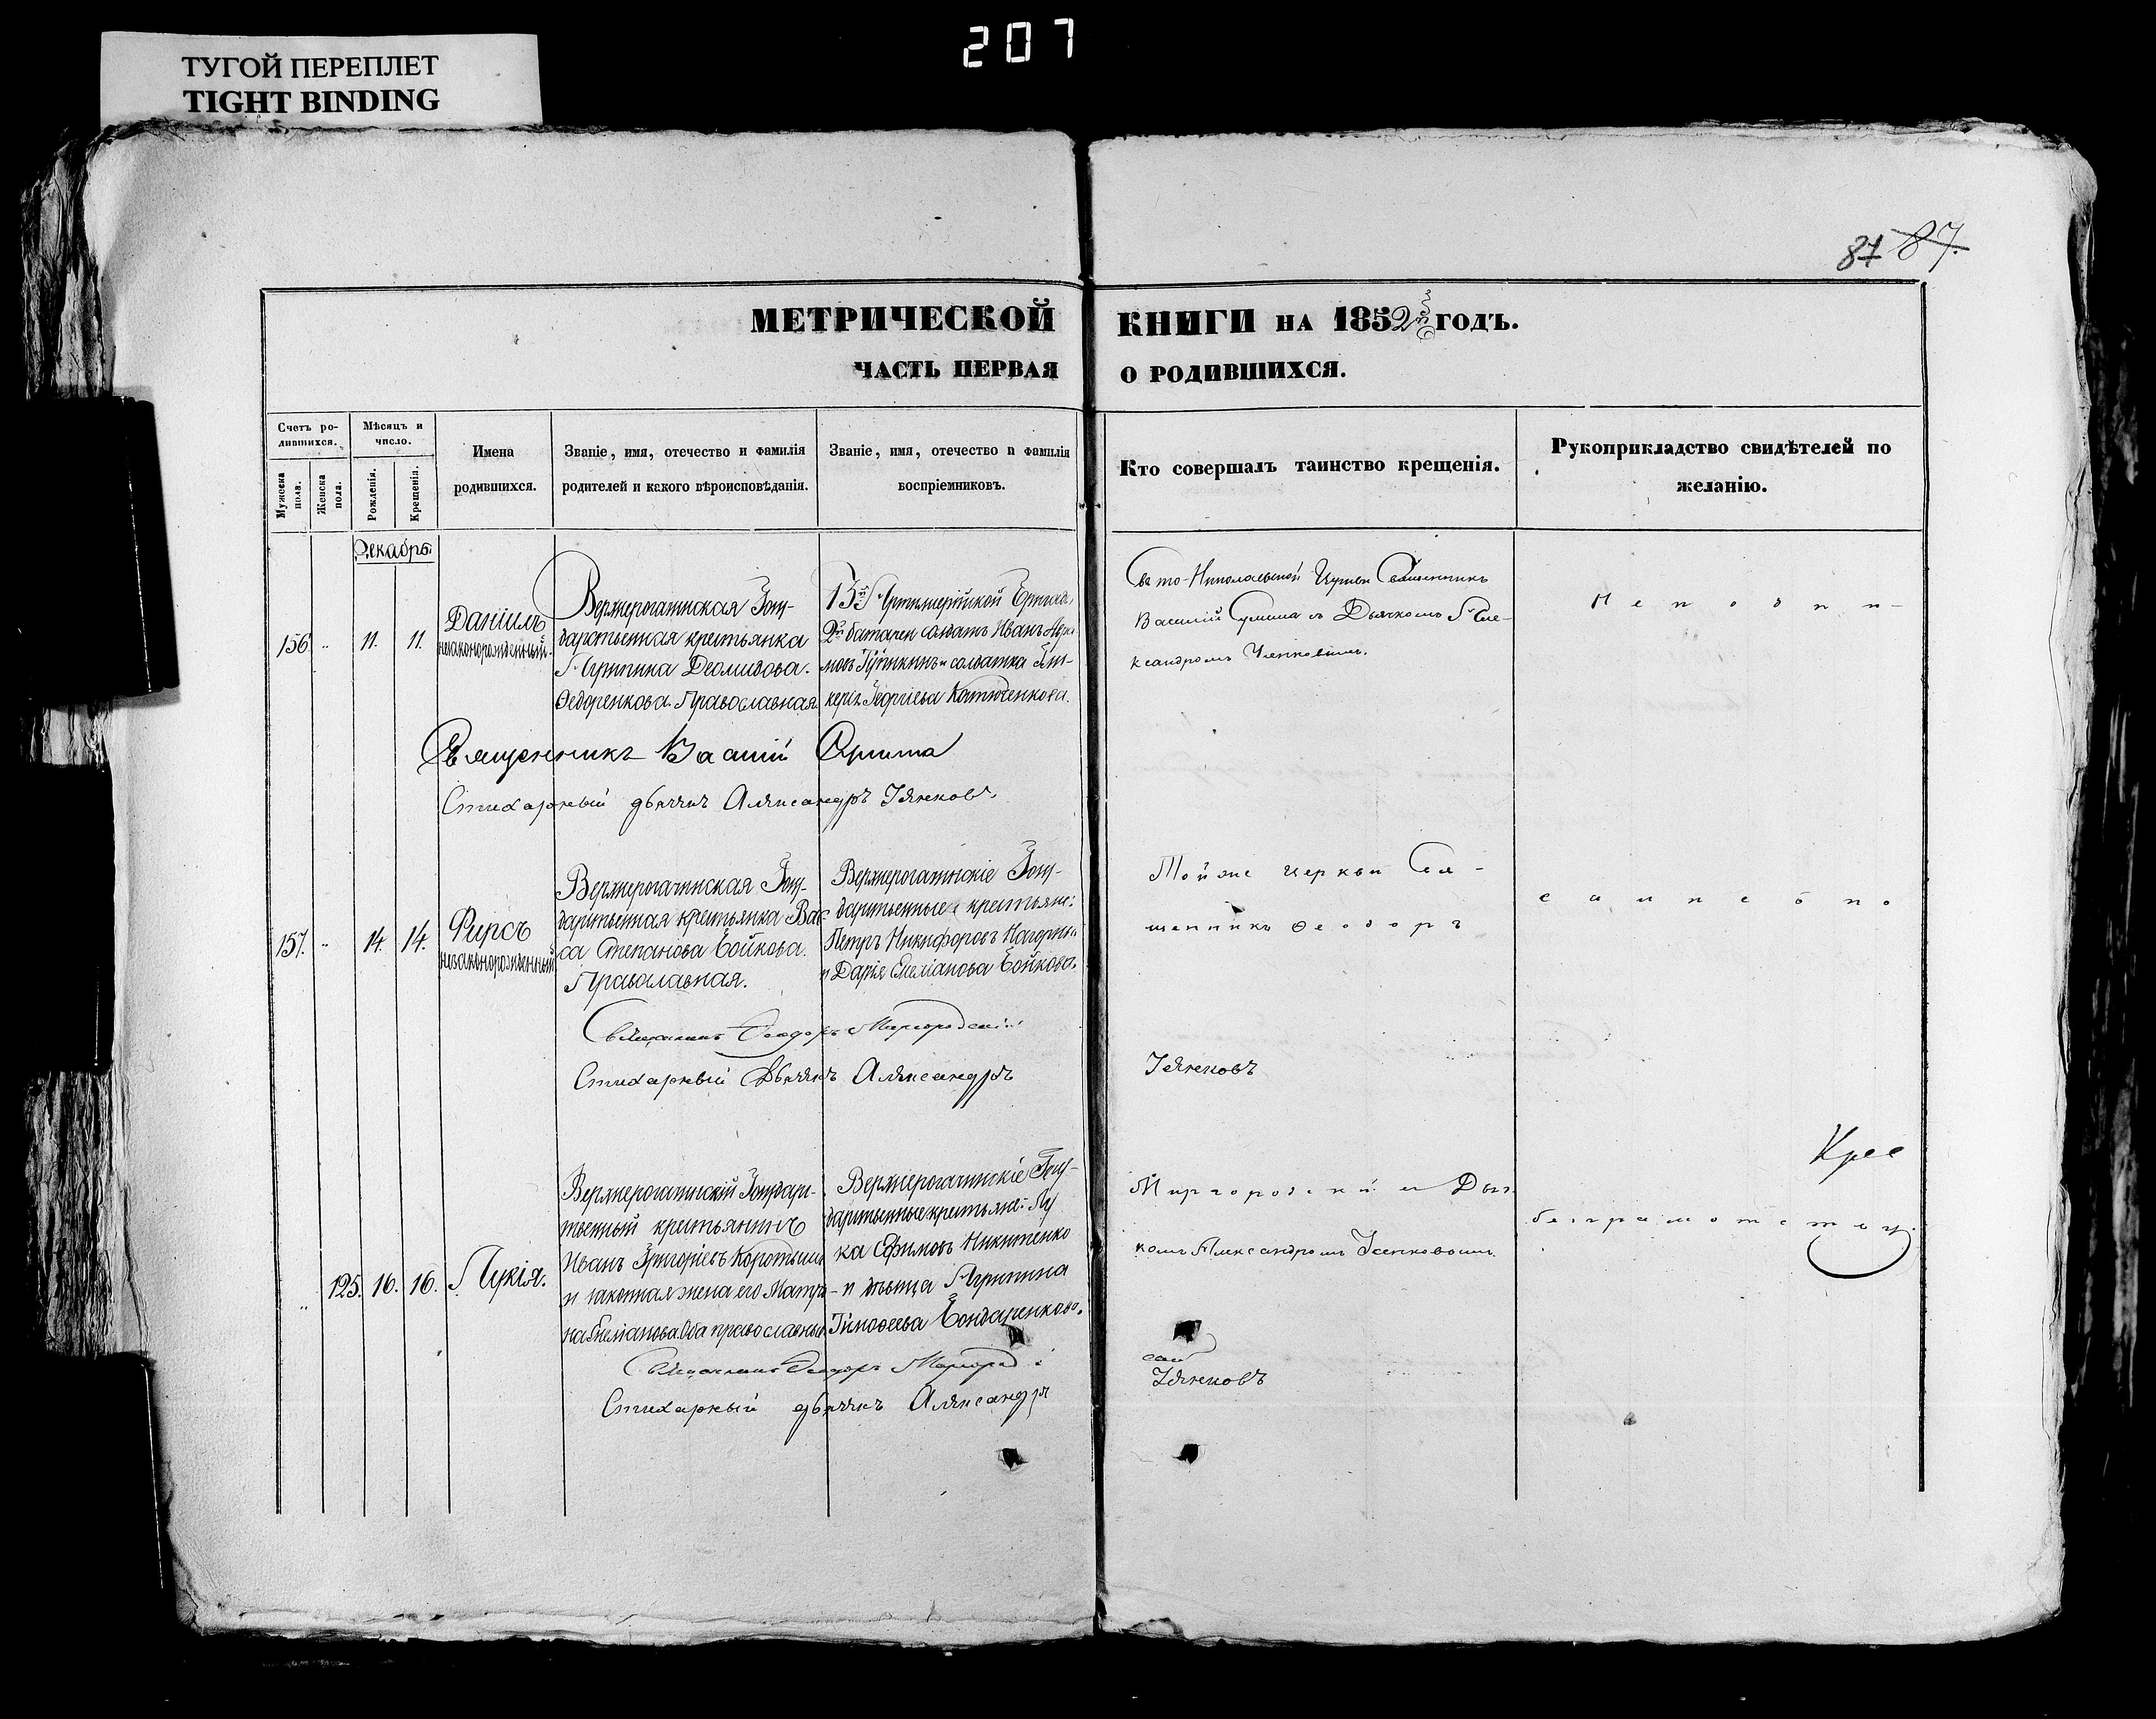 207
ТУГОЙ ПЕРЕПЛЕТ
TIGHT BINDING
87 87.
МЕТРИЧЕСКОЙ КНИГИ НА 1852 ГОДЪ.
ЧАСТЬ ПЕРВАЯ О РОДИВШИХСЯ.
Счетъ ро-
дившихся.
Мужеска
пола.
Женска
пола.
Мѣсяцъ и
число.
Рожденія.
Крещенія.
Имена
родившихся.
Званіе, имя, отечество и фамилія
родителей и какого вѣроисповѣданія.
Званіе, имя, отечество и фамилія
воспріемниковъ.
Кто совершалъ таинство крещенія.
Рукоприкладство свидѣтелей по
желанію.
Декабрь
156 „ 11. 11.
Даніилъ
незаконорожденный.
Верхнерогачинская Госу-
дарственная крестьянка
Агрипина Деомидова.
Ѳедоренкова. Православная
15й Артилерійской Бригады
2й батареи солдатъ Иванъ
и солдатка
Георгіева
Свято-Николаевской Церкви Священникъ
Василій с Дьячкомъ Але-
ксандромъ
Священникъ Василій
Стихарный дьячекъ Александръ
157. „ 14. 14.
Фирсъ
незаконорожденный
Верхнерогачинская Госу-
дарственная крестьянка Вас-
са Степанова Бойкова.
Православная.
Верхнерогачинскіе Госу-
дарственные крестьяне:
Петръ Никифоровъ Нагорный
и Дарія Емеліанова Бойкова.
Той же Церкви Свя-
щенникъ Ѳеодоръ
Священникъ Ѳеодоръ Миргородскій
Стихарный Дьячекъ Александръ
„ 125. 16. 16.
Лукія.
Верхнерогачинскій Государс-
твенный крестьянинъ
Иванъ Григоріевъ
и законная жена его Матро-
на Емеліанова. Оба православные
Верхнерогачинскіе Госу-
дарственные крестьяне: Лу
ка Ефимовъ Никитенко
и дѣвица Агрипина
Тимоѳеева Бондаренкова.
Миргородскій и Дья
комъ Александромъ
Крес
безграмотству.
Священникъ Ѳеодоръ
Стихарный дьячекъ Александръ